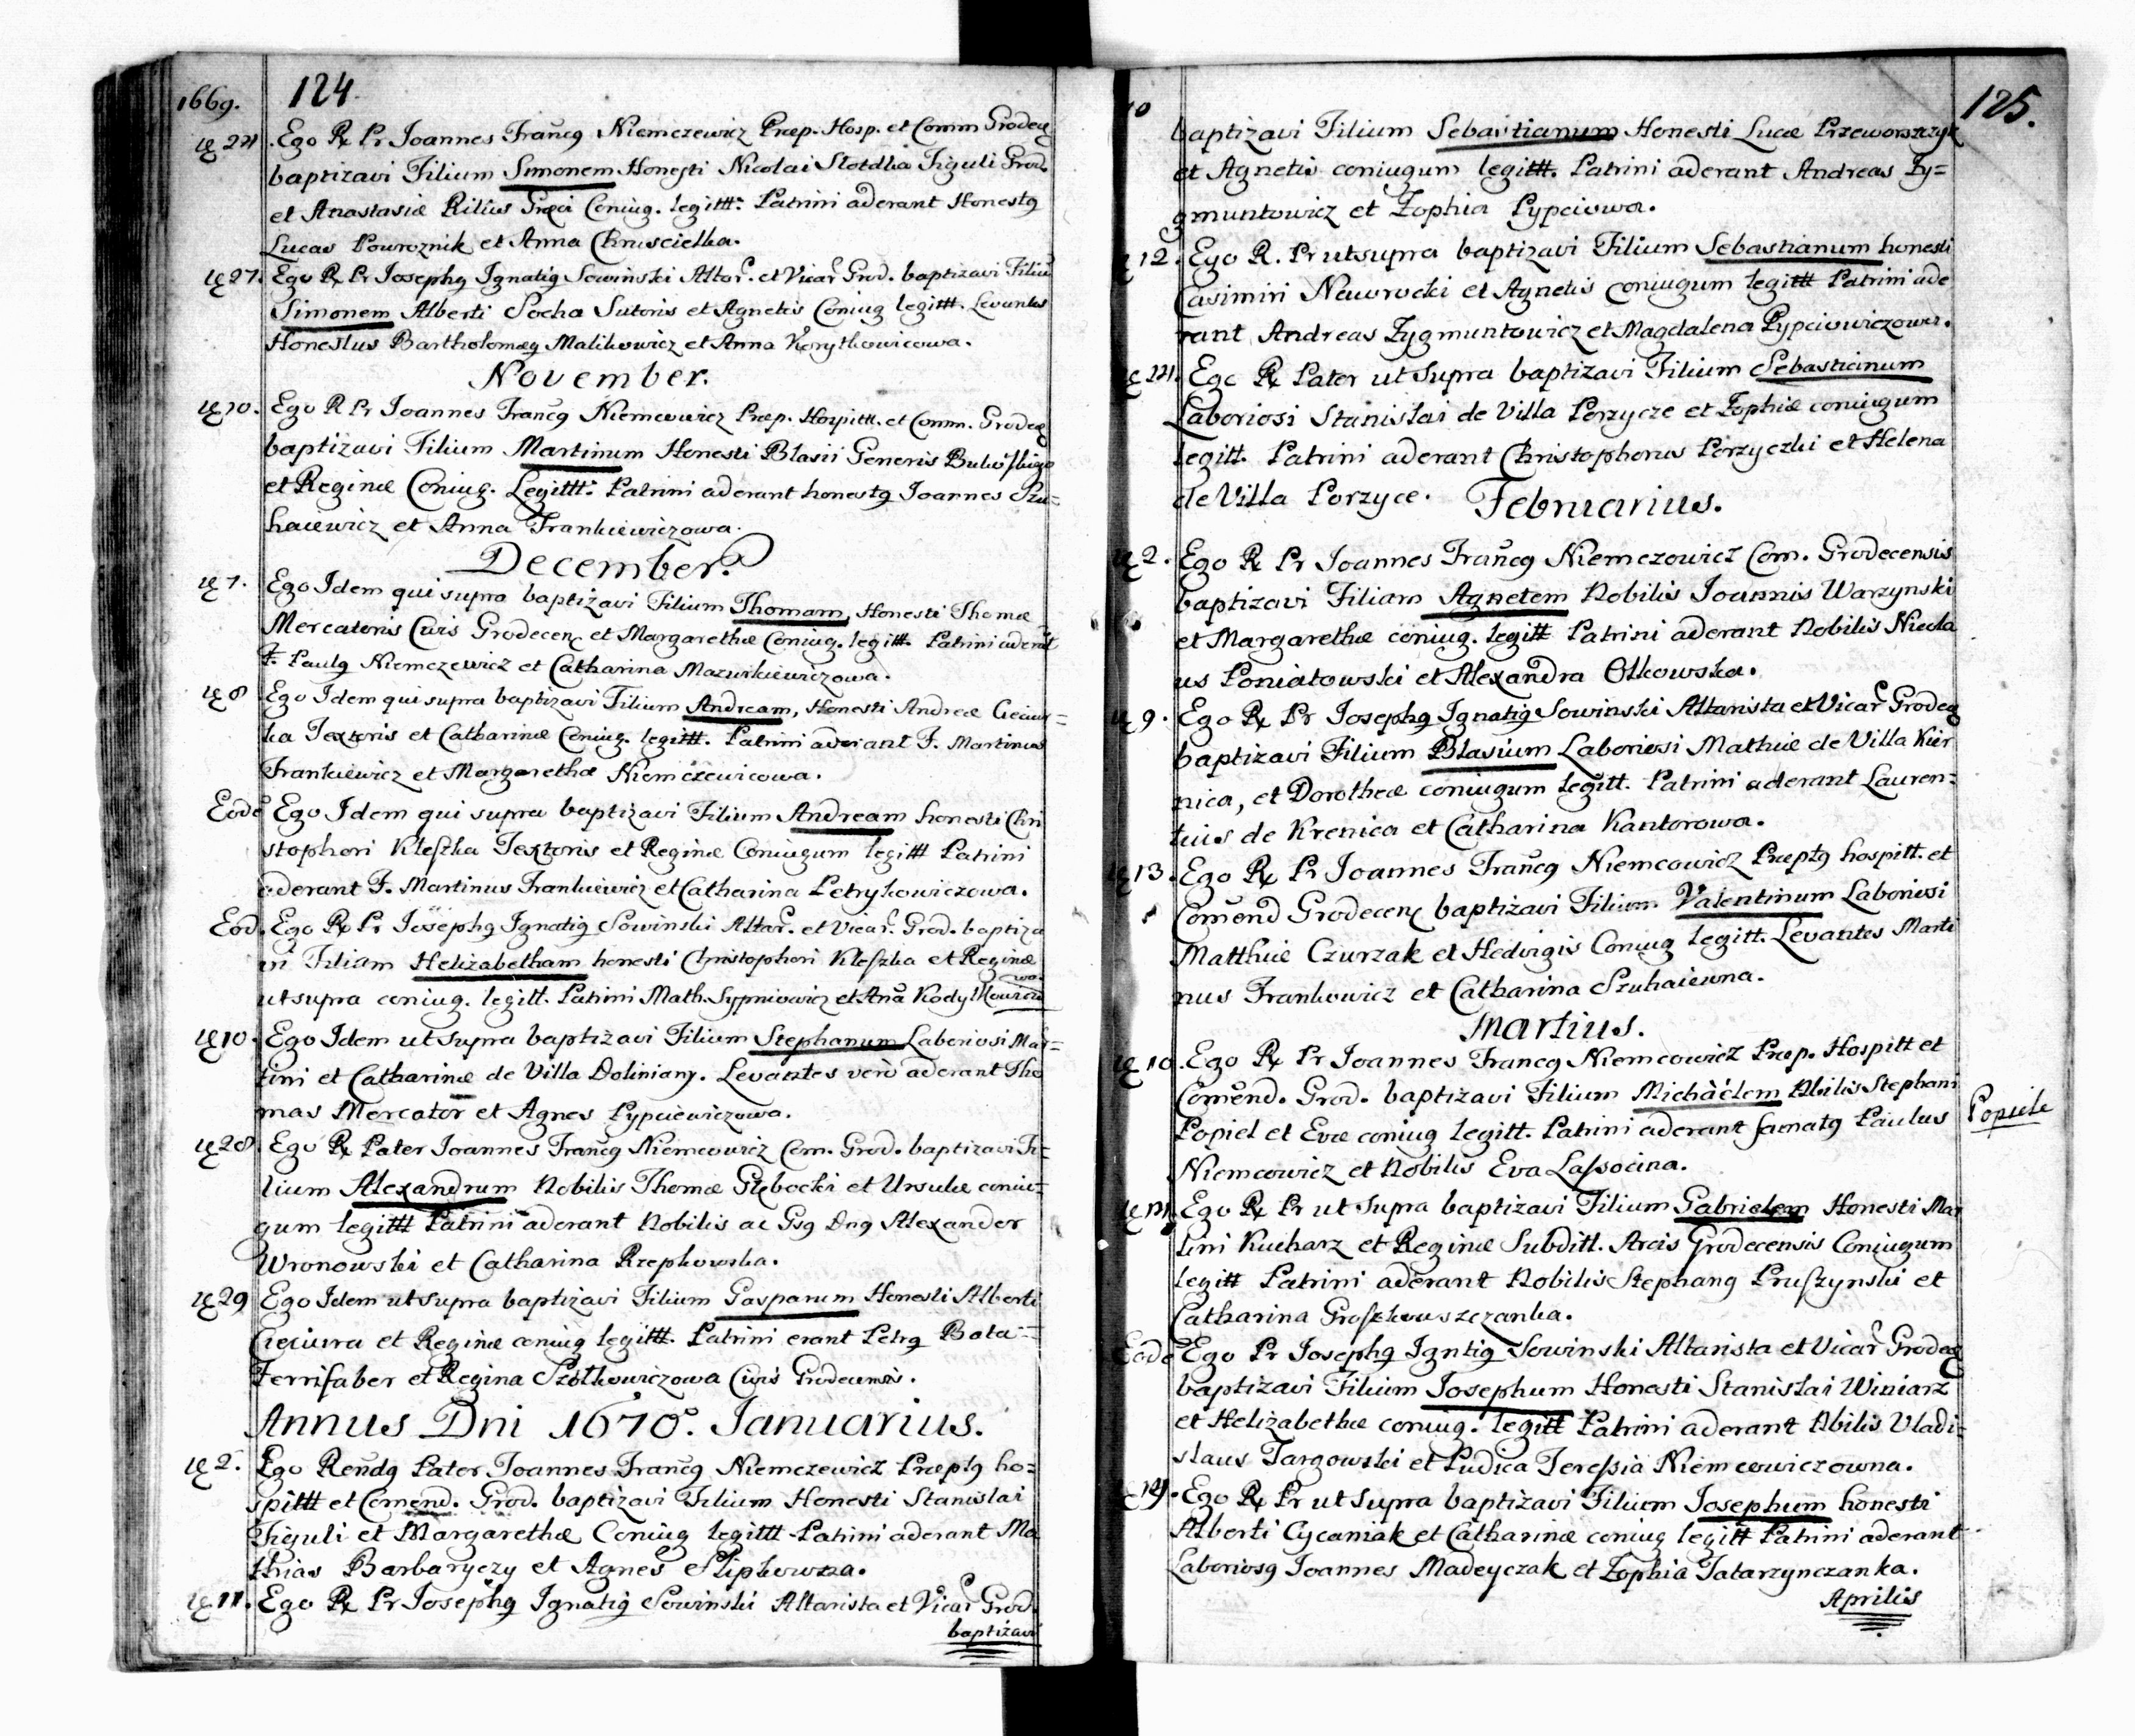 1669.
124
24. Ego R. Pr Joannes Francg Niemczewicz Præp. Hosp. et Comm Grodec
baptizavi Filium Simonem Honesti Nicolai Figuli Grod.
et Anastasiæ Coniug. legittt: Patrini aderant Honestg
Lucas Powroznik et Anna
27. Ego R Pr Josephg Ignatig Sowinski Altar. et Vicar Grod. baptizavi Filiū
Simonem Alberti Socha Sutoris et Agnetis Coniug legittt. Levantes
Honestus Bartholomæg Malikowicz et Anna
November.
10. Ego R Pr Joannes Francg Niemcowicz Præp. Hospittt. et Comm. Grodec
baptizavi Filium Martinum Honesti Blasii Generis
et Reginæ Coniug. Legittt: Patrini aderant honestg Joannes Szu=
haiewicz et Anna Frankiewiczowa.
December.
7. Ego Idem qui supra baptizavi Filium Thomam, Honesti Thomæ
Mercatoris Civis Grodecen et Margarethæ Coniug. legittt. Patrini aderāt
F. Paulg Niemczewicz et Catharina Mazurkiewiczowa.
8 Ego Idem qui supra baptizavi Filium Andream, Honesti Andreæ
ka Textoris et Catharinæ Coniug. legittt. Patrini aderant F. Martinus
Frankiewicz et Margarethæ Niemczewicowa.
Eodē Ego Idem qui supra baptizavi Filium Andream honesti Chri
stophori Kleszka Textoris et Reginæ Coniugum legittt Patrini
aderant F. Martinus Frankiewicz et Catharina Petrykowiczowa.
Eod. Ego R Pr Josephg Ignatig Sowinski Altar. et Vicar. Grod. baptiza
vi Filiam Helizabetham honesti Christophori Kleszka et Reginæ
ut supra coniug. legitt. Patrini Math. Sypniowicz et Anā
10. Ego Idem ut supra baptizavi Filium Stephanum Laboriosi Mar=
tini et Catharinæ de Villa Doliniany. Levantes verò aderant Tho
mas Mercator et Agnes Pypciewiczowa.
28. Ego R Pater Joannes Francg Niemcowicz Com. Grod. baptizavi Fi=
lium Alexandrum Nobilis Thomæ Głębocki et Ursulæ coniu=
gum legittt Patrini aderant Nobilis ac Gsg Dng Alexander
Wronowski et Catharina Rzepkowska.
29 Ego Idem ut supra baptizavi Filium Gasparum Honesti Alberti
et Reginæ coniug legittt. Patrini erant Petrg Bata=
Ferrifaber et Regina Civis Grodecensis.
Annus Dni 1670. Ianuarius.
2. Ego Rendg Pater Joannes Francg Niemczewicz Præptg ho=
spittt et Comend. Grod. baptizavi Filium Honesti Stanislai
Figuli et Margarethæ Coniug legittt Patrini aderant Ma
thias Barbaryczy et Agnes
11. Ego R Pr Josephg Ignatig Sowinski Altarista et Vicar Grod.
baptizavi
125.
baptizavi Filium Sebastianum Honesti Lucæ
et Agnetis coniugum legittt. Patrini aderant Andreas Zy=
gmuntowicz et Zophia Pypciowa.
12. Ego R. Pr ut supra baptizavi Filium Sebastianum honesti
Casimiri Nawrocki et Agnetis coniugum legittt Patrini ade
rant Andreas Zygmuntowicz et Magdalena Pypciowiczowa.
Ego R Pater ut supra baptizavi Filium Sebastianum
Laboriosi Stanislai de Villa Porzycze et Zophiæ coniugum
legitt. Patrini aderant Christophorus Porzyczki et Helena
de Villa Porzyce.
Februarius.
2. Ego R Pr Joannes Francg Niemczowicz Com. Grodecensis
baptizavi Filiam Agnetem Nobilis Joannis Warzynski
et Margarethæ coniug. legitt Patrini aderant Nobilis Nicola
us Poniatowski et Alexandra Olkowska.
9. Ego R Pr Josephg Ignatig Sowinski Altarista et Vicar Grodec
baptizavi Filium Blasium Laboriosi Mathiæ de Villa Kier
nica, et Dorotheæ coniugum legitt. Patrini aderant Lauren=
tius de Krenica et Catharina Kantorowa.
13. Ego R Pr Joannes Francg Niemcowicz Præptg hospitt. et
Comend Grodecen baptizavi Filium Valentinum Laboriosi
Matthiæ Czurzak et Hedvigis Coniug legitt. Levantes Marti
nus Frankowicz et Catharina Szuhaiewna.
Martius.
10. Ego R Pr Joannes Francg Niemcowicz Præp. Hospitt et
Comend. Grod. baptizavi Filium Michàélem Nbilis Stephani
Popiel et Evæ coniug legitt. Patrini aderant famatg Paulus
Niemcowicz et Nobilis Eva Lassocina.
Popiele
Ego R Pr ut supra baptizavi Filium Gabrielem Honesti Mar
tini Kucharz et Reginæ Subditt. Arcis Grodecensis Coniugum
legitt Patrini aderant Nobilis Stephang Pruszynski et
Catharina
Eodē Ego Pr Josephg Igntig Sowinski Altarista et Vicar Grodec
baptizavi Filium Josephum Honesti Stanislai Winiarz
et Helizabethæ coniug. legitt Patrini aderant Nbilis Vladi=
slaus Targowski et Pudica Teressia Niemcewiczowna.
19. Ego R Pr ut supra baptizavi Filium Josephum honesti
Alberti Cycaniak et Catharinæ coniug legitt Patrini aderant
Laboriosg Joannes Madeyczak et Zophia Tatarzynczanka.
Aprilis